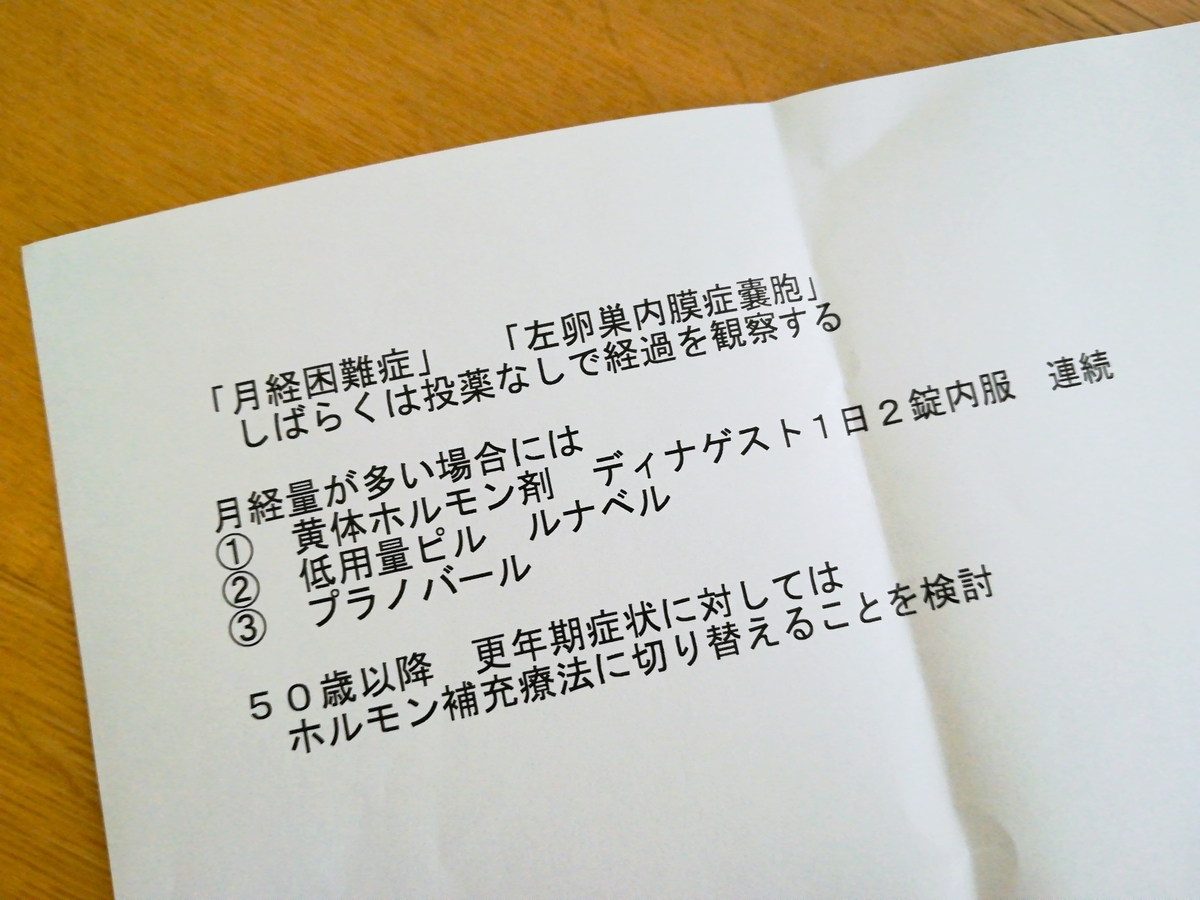 「月経困難症」　「左卵巣内膜症嚢胞」
しばらくは投薬なしで経過を観察する
月経量が多い場合には
①　黄体ホルモン剤　ディナゲスト１日２錠内服　連続
②　低用量ピル　ルナベル
③　プラノバール
５０歳以降　更年期症状に対しては
ホルモン補充療法に切り替えることを検討